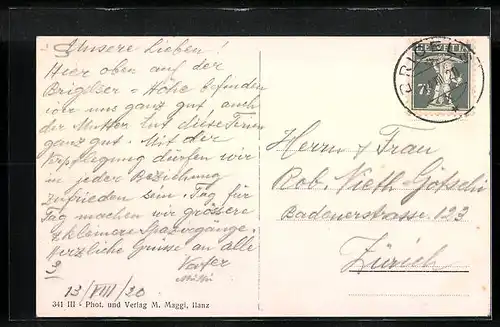 Unsere Lieben!
Hier oben auf der
Brigelser-Höhe befinden
wir uns ganz gut, auch
der Mutter tut diese Ferien
ganz gut. Mit der
Verpflegung dürfen wir
in jeder Beziehung
zufrieden sein. Tag für
Tag machen wir grössere
& kleinere Spaziergänge.
Herzliche Grüsse an alle
13/VIII/20
341 III - Phot. und Verlag M. Maggi, Ilanz
HELVETIA
7½
BRIGELS
Herrn & Frau
Rob. Vieth-Götschi
Badenerstrasse 123
Zürich